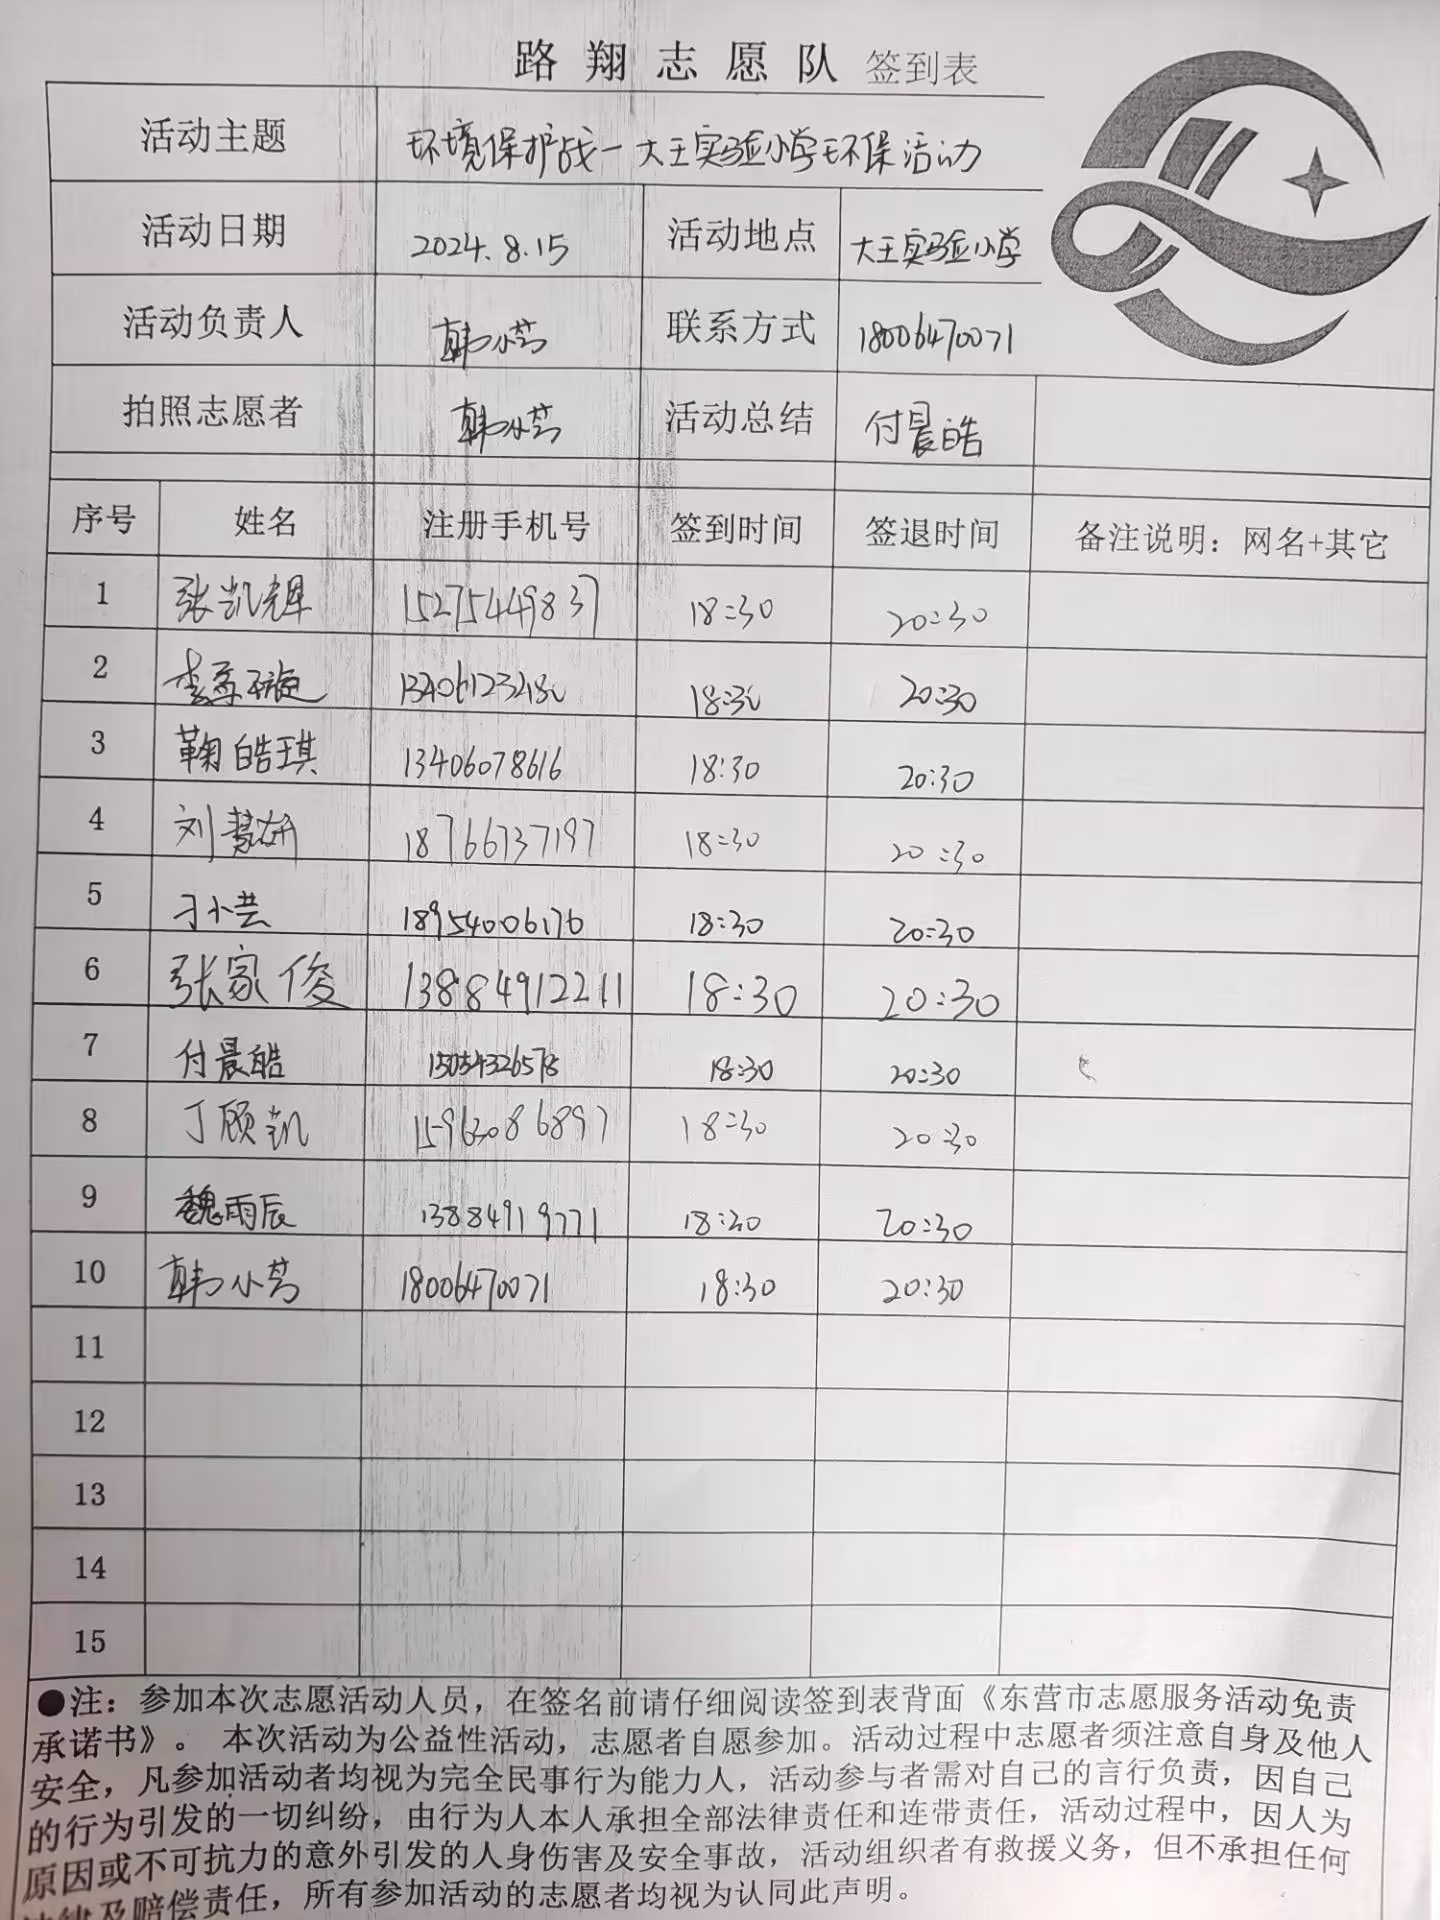 路翔志愿队 签到表
活动主题 环境保护战一大王实验小学环保活动
活动日期 2024.8.15 活动地点 大王实验小学
活动负责人 韩小芳 联系方式 18006470071
拍照志愿者 韩小芳 活动总结 付晨皓
序号 姓名 注册手机号 签到时间 签退时间 备注说明：网名+其它
1 张凯辉 15275449837 18:30 20:30
2 李 18:30 20:30
3 鞠皓琪 13406078616 18:30 20:30
4 刘慧妍 18766737197 18:30 20:30
5 刁小芸 18954006176 18:30 20:30
6 张家俊 13884912211 18:30 20:30
7 付晨皓 15054326578 18:30 20:30
8 丁顾凯 15963086897 18:30 20:30
9 魏雨辰 13884919771 18:30 20:30
10 韩小芳 18006470071 18:30 20:30
11
12
13
14
15
●注：参加本次志愿活动人员，在签名前请仔细阅读签到表背面《东营市志愿服务活动免责
承诺书》。 本次活动为公益性活动，志愿者自愿参加。活动过程中志愿者须注意自身及他人
安全，凡参加活动者均视为完全民事行为能力人，活动参与者需对自己的言行负责，因自己
的行为引发的一切纠纷，由行为人本人承担全部法律责任和连带责任，活动过程中，因人为
原因或不可抗力的意外引发的人身伤害及安全事故，活动组织者有救援义务，但不承担任何
法律及赔偿责任，所有参加活动的志愿者均视为认同此声明。